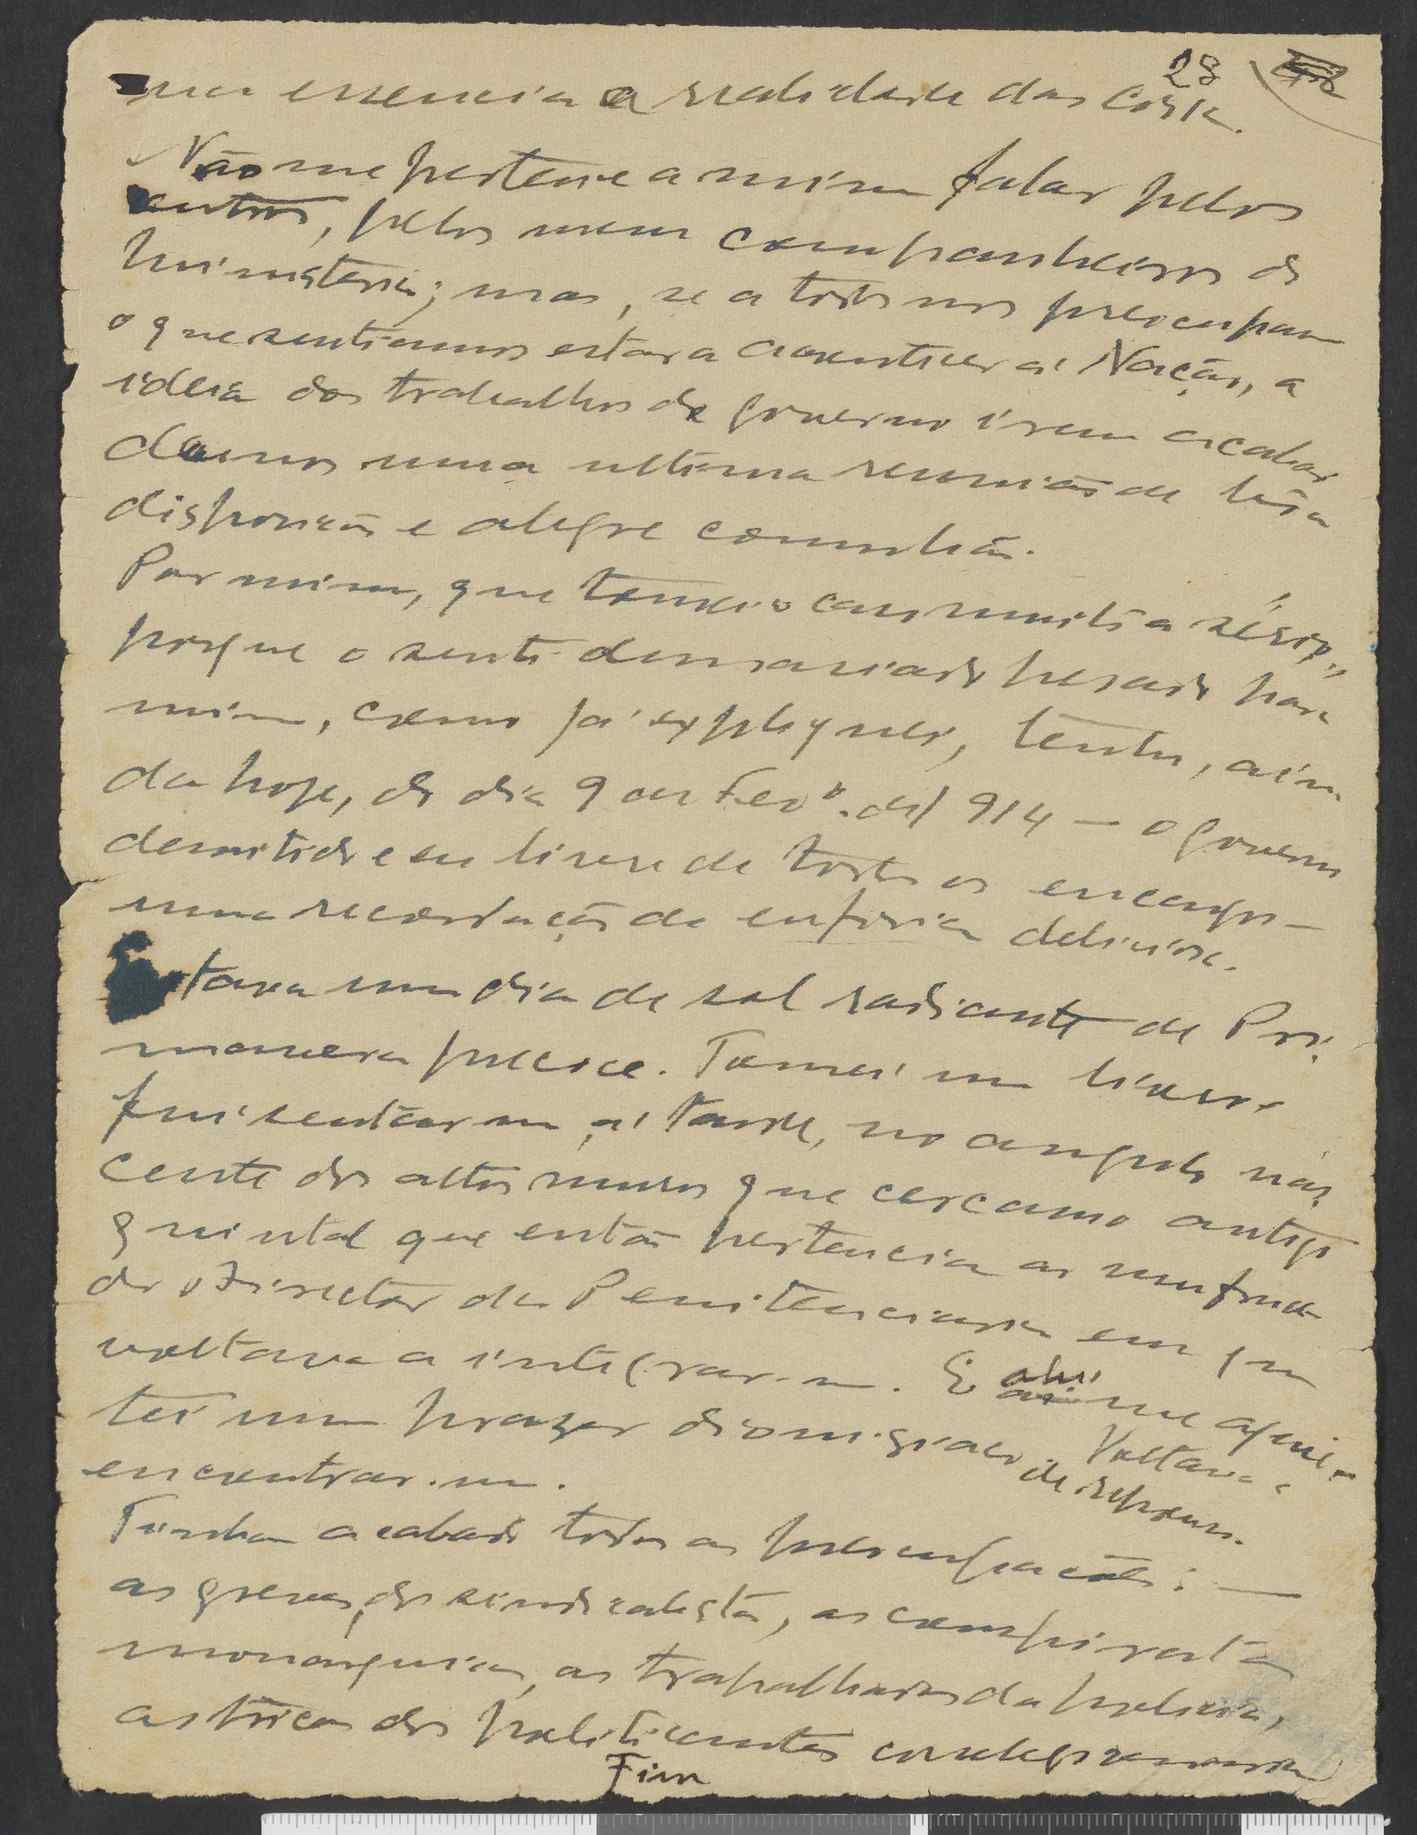 28
sua essencia a realidade das coisas.
Não me pertence a mim falar pelos
outros, pelos meus companheiros de
ministerio; mas, se a todos nos preocupava
o que sentiamos estar a acontecer á Nação, a
ideia dos trabalhos de governo irem acabar
dava-nos uma ultima reunião de boa
disposição e alegre comunhão.
Por mim, que tomei o caso muito a sério,
porque o senti demasiado pesado para
mim, como já expliquei, tenho, ain-
da hoje, do dia 9 de Fevº. de 1914 — o governo
demitido e eu livre de todos os encargos —
uma recordação de euforia deliciosa.
Estava um dia de sol radiante de Pri-
mavera precoce. Tomei um livro e
fui sentar-me, á tarde, no angulo nas-
cente dos altos muros que cercam o antigo
quintal que então pertencia ao
do Director da Penitenciaria em que
voltava a integrar-me. E ahi me aquie-
tei num prazer dionisiaco de repouso. Voltava a
encontrar-me.
Tinham acabado todas as preocupações: —
as greves dos sindicalistas, as conspiratas
monarquicas, as trapalhadas da policia,
as tricas dos politicantes
Fim